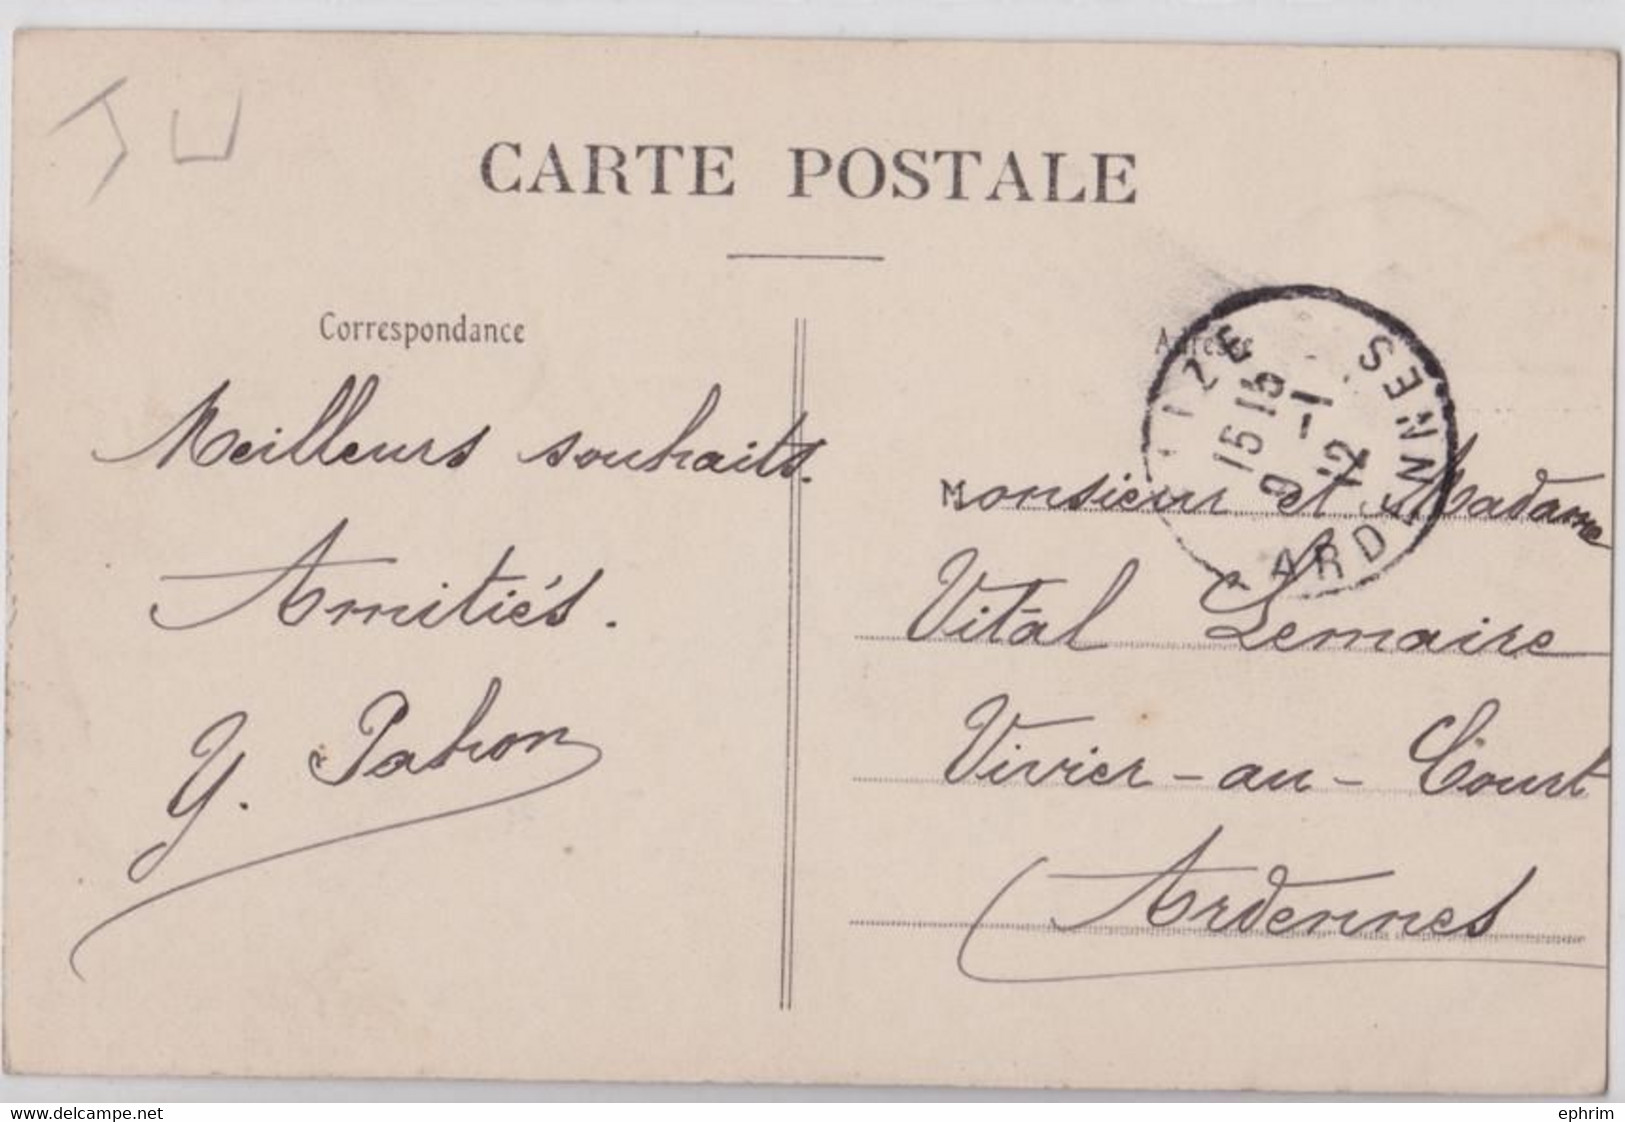 CARTE POSTALE
Correspondance
Adresse
Meilleurs souhaits.
Amitiés.
Y. Patron
Monsieur et Madame
Vital Lemaire
Vivier-au-Court
Ardennes
IZE SENNES
15 15
9 -1
12
ARD
www.delcampe.net
ephrim